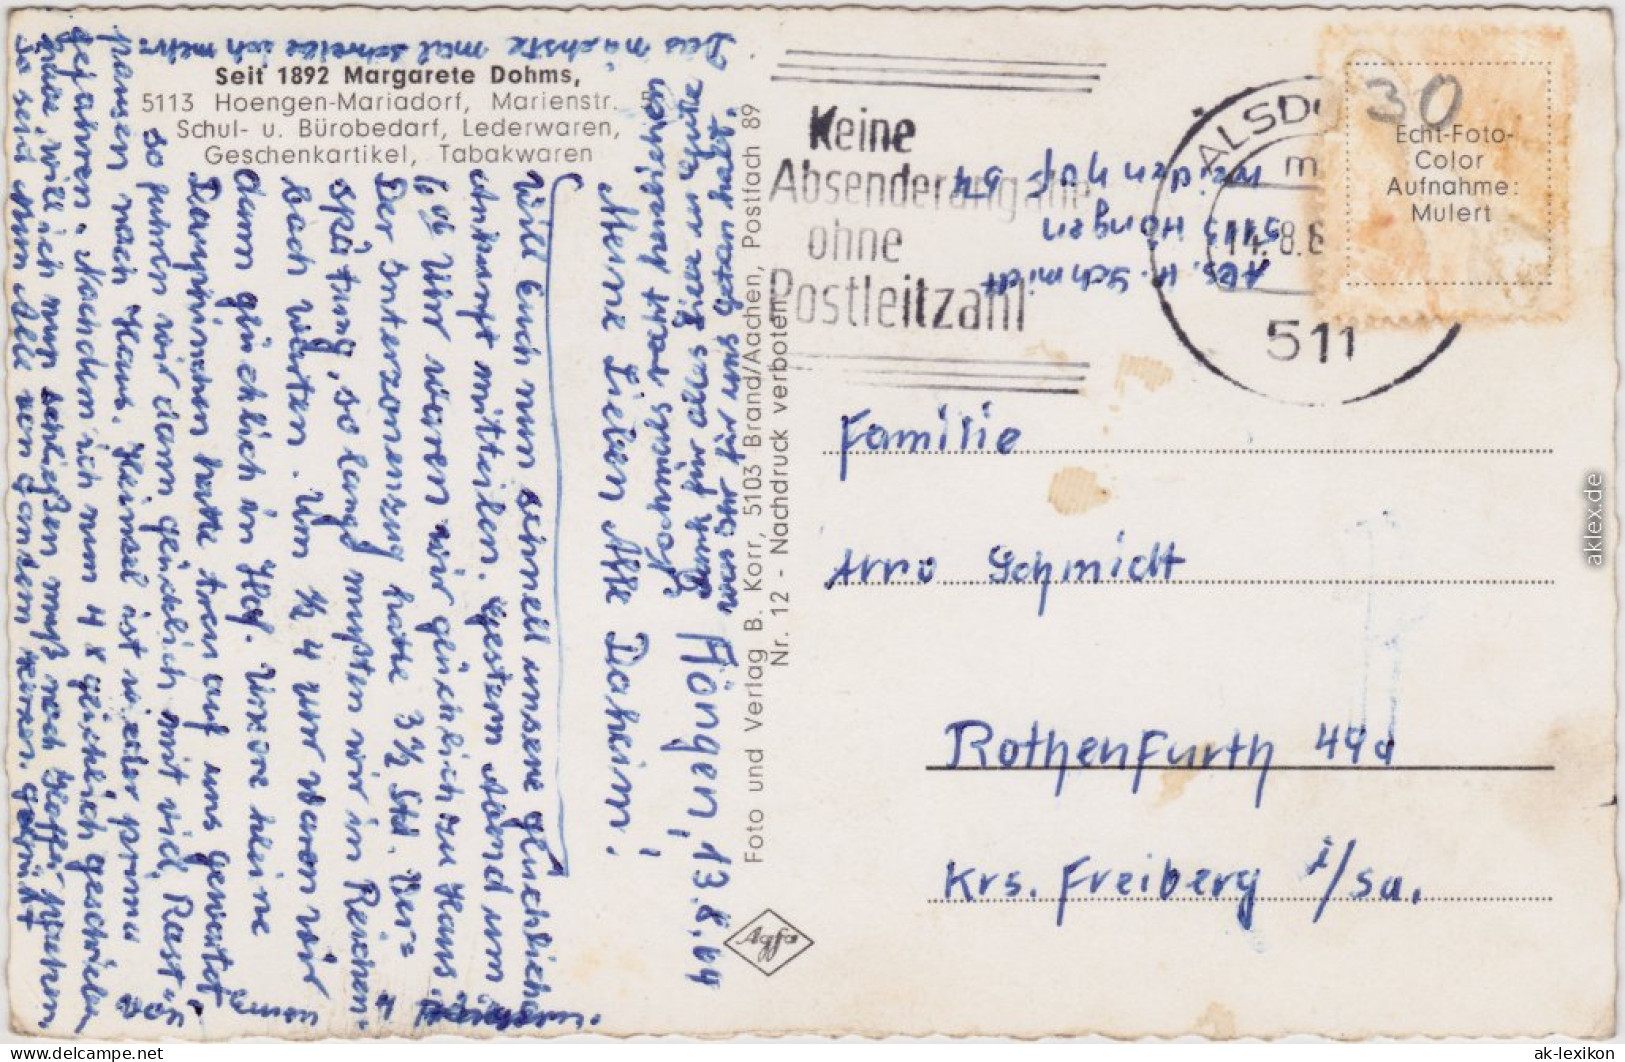 Seit 1892 Margarete Dohms,
5113 Hoengen-Mariadorf, Marienstr.
Schul- u. Bürobedarf, Lederwaren,
Geschenkartikel, Tabakwaren
Höngen, 13.8.64
Meine Lieben Alle Daheim!
Will Euch nun schnell unsere glückliche
Ankunft mitteilen. Gestern Abend um
Uhr waren wir glücklich zu Haus.
Der Interzonenzug hatte 3 1/2 Std. Ver=
spätung, so lange mußten wir in Reichen=
bach warten. Um 1/2 4 Uhr waren wir
dann glücklich in Hof. Unsre kleine
Dampinchen hatte treu auf uns gewartet
so fuhren wir dann glücklich mit viel Rast u.
pausen nach Haus. Heimsel ist wieder prima
gefahren. Nachdem ich nun 4 x glücklich geschrieben
habe will ich nun schließen muß noch Kaffee kochen
So seid nun Alle von ganzem Herzen gegrüßt
Das nächste mal schreibe ich mehr.
Dank für alles Liebe u. Gute
was Ihr für uns getan habt.
Foto und Verlag B. Korr, 5103 Brand/Aachen, Postfach 89
Nr. 12 - Nachdruck verboten
Agfa
Keine
Absenderangabe
ohne
Postleitzahl
Abs. H. Schmidt
5113 Höngen
Weidenhof 64
ALSDO
14.8.6
511
30
Echt-Foto-
Color
Aufnahme:
Mulert
Familie
Arno Schmidt
Rothenfurth 44d
Krs. Freiberg i/Sa.
aklex.de
www.ansichtskarten-lexikon.de
ak-lexikon